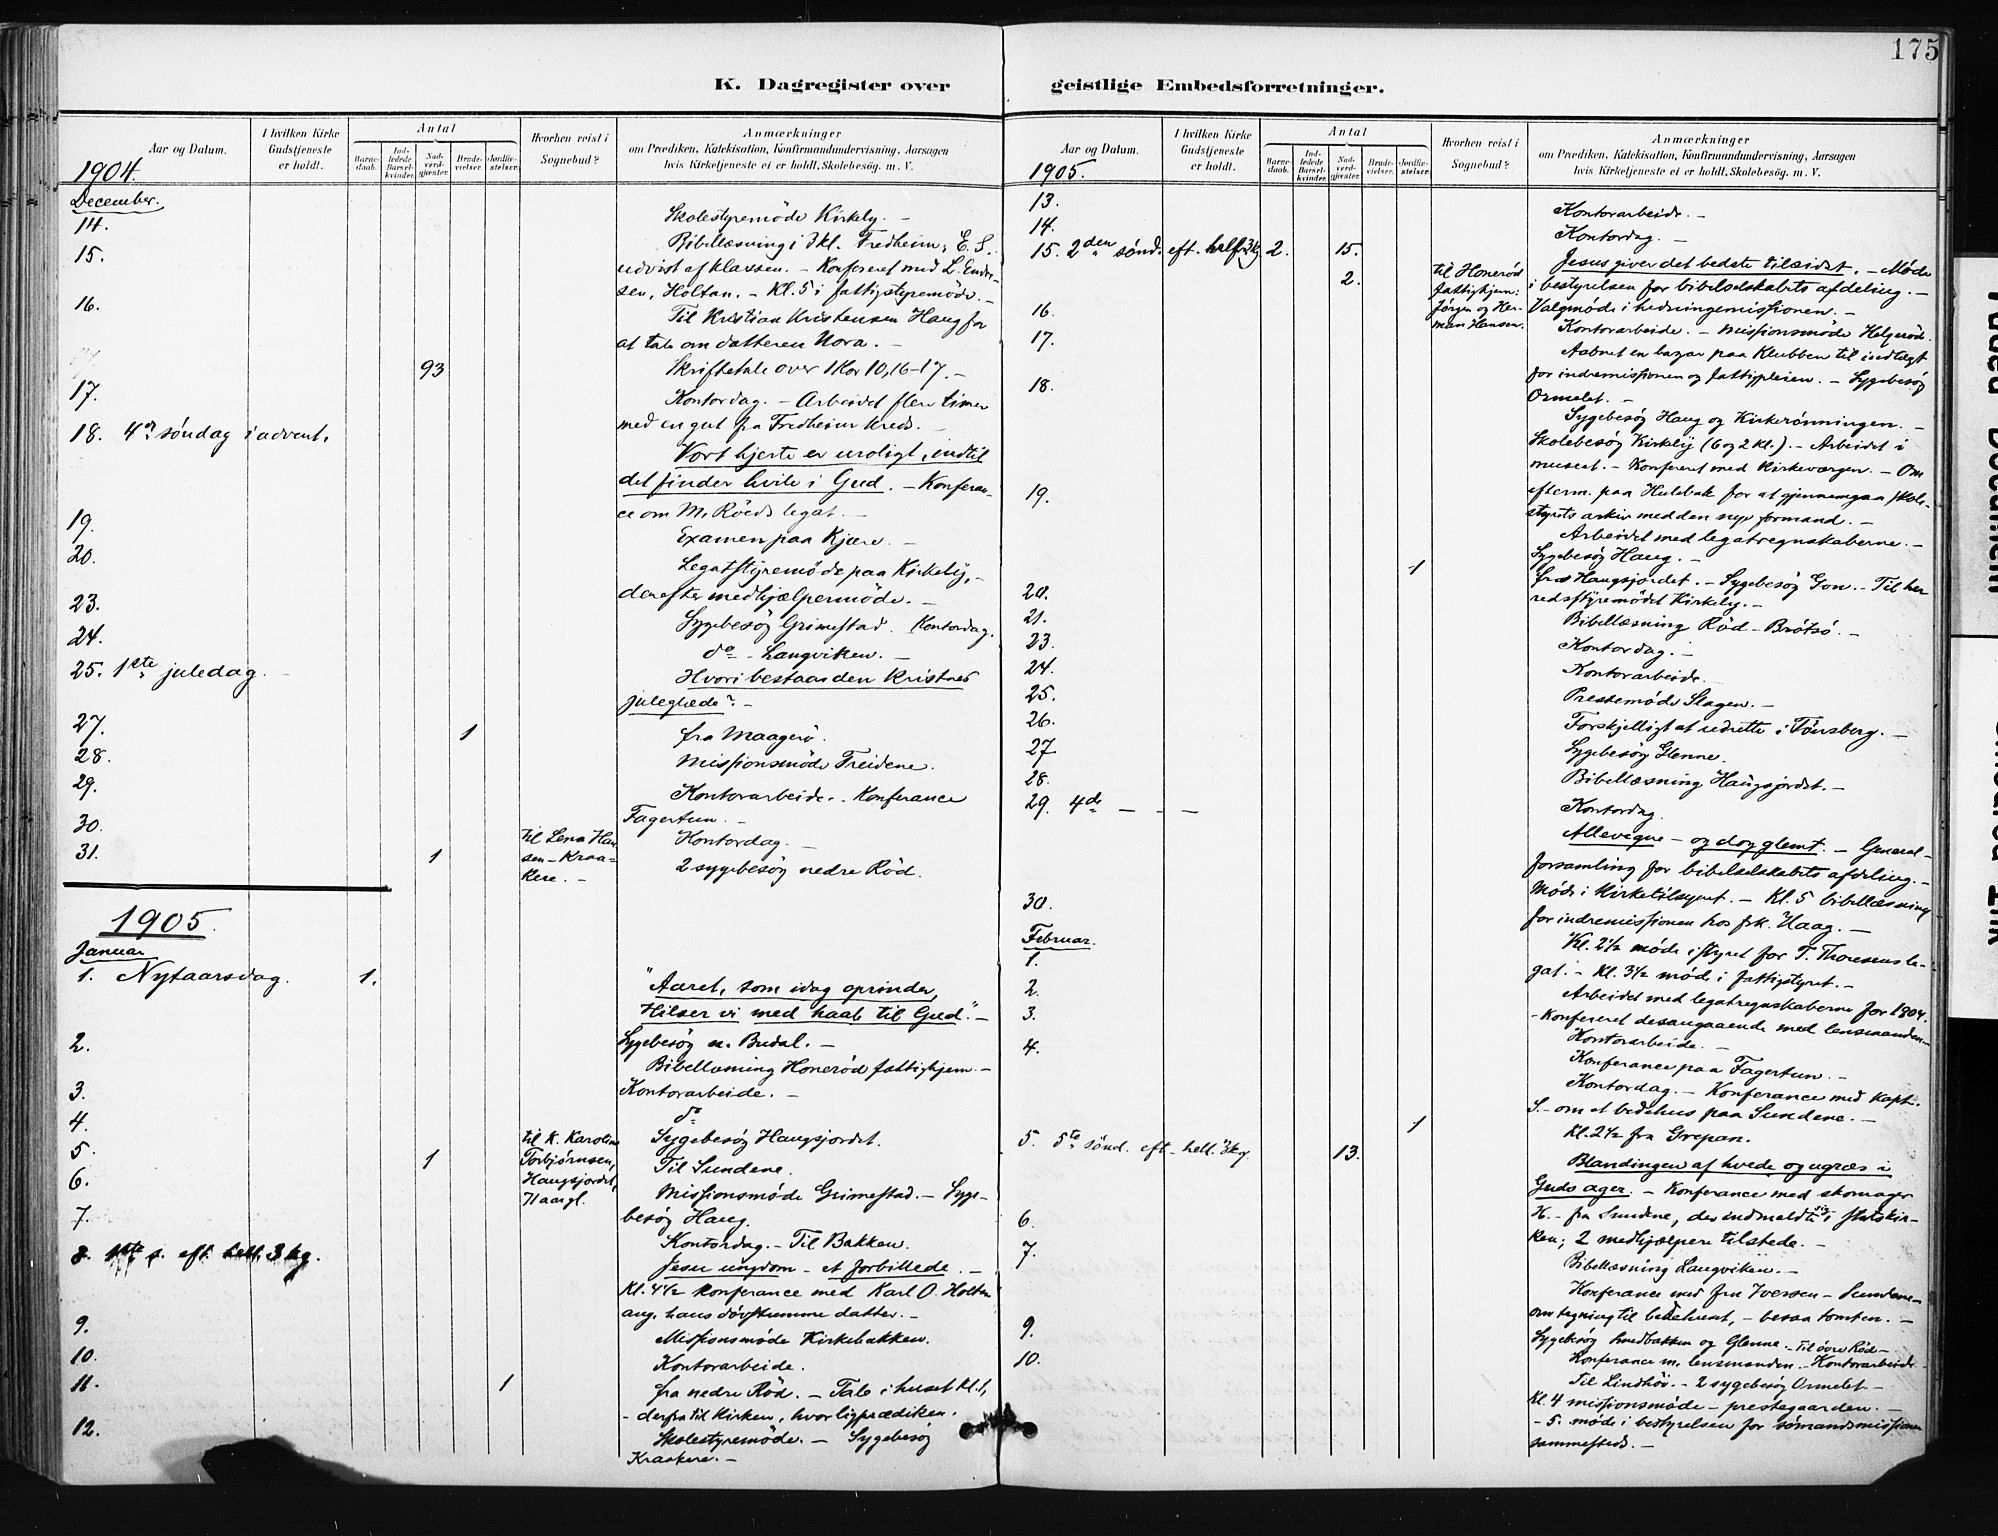 175
K. Dagregister over geistlige Embedsforretninger.
Aar og Datum.
I hvilken Kirke Gudstjeneste er holdt.
Antal
Barnedaab.
Indledede Barselkvinder.
Nadverdgjæster.
Brudevielser.
Jordfæstelser.
Hvorhen reist i Sognebud?
Anmærkninger
om Prædiken, Katekisation, Konfirmandundervisning, Aarsagen
hvis Kirketjeneste ei er holdt, Skolebesøg, m. V.
1904.
December.
14.
Skolestyremöde Kirkely. -
15.
Bibellæsning i 3kl. Fredheim; E. S.
udvist af klassen. - Konfereret med L. Endre-
sen, Holtan. - Kl. 5 i fattigstyremöde. -
16.
Til Kristian Kristensen Haug for
at tale om datteren Nora. -
93
Skriftetale over 1 Kor 10, 16-17. -
17.
Kontordag. - Arbeidet flere timer
med en gut fra Fredheim kreds. -
18. 4de søndag i advent.
Vort hjerte er uroligt, indtil
det finder hvile i Gud. - Konferan-
ce om M. Röeds legat. -
19.
Examen paa Kjære. -
20.
Legatstyremöde paa Kirkely, -
derefter medhjælpermöde. -
23.
Sygebesög Grimestad. Kontordag.
24.
do - Langviken. -
25. 1ste juledag. -
Hvori bestaar den kristnes
juleglæde? -
27.
1
fra Maagerö.
28.
Missionsmöde Treidene.
29.
Kontorarbeide. - Konferance
Fagertun. -
30.
Kontordag. -
31.
1
til Lena Han
sen - Kraa-
kere. -
2 sygebesög nedre Röd.
1905.
Januar
1. Nytaarsdag.
1.
"Aaret, som idag oprinder,
Hilser vi med haab til Gud." -
2.
Sygebesög n. Budal. -
Bibellæsning Honeröd fattighjem. -
3.
Kontorarbeide. -
4.
do
5.
1
til K. Karoline
Torbjørnsen,
Haugsjordet,
Sygebesög Haugsjordet.
Til Sundene.
6.
Missionsmöde Grimestad. - Syge-
besög Haug.
7.
Kontordag. - Til Bakken.
8. 1ste s. eft. hell. 3 kg.
Jesu ungdom - et forbillede. -
Kl. 4½ konferance med Karl O. Holtan
ang. hans døvstumme datter. -
9.
Missionsmöde Kirkebakken.
10.
Kontorarbeide.
11.
1
fra nedre Röd. - Tale i huset kl. 1,
- derfra til kirken, hvor ligprædiken.
12.
Skolestyremöde. - Sygebesög
Kraakere. -
Aar og Datum.
I hvilken Kirke Gudstjeneste er holdt.
Antal
Barnedaab.
Indledede Barselkvinder.
Nadverdgjæster.
Brudevielser.
Jordfæstelser.
Hvorhen reist i Sognebud?
Anmærkninger
om Prædiken, Katekisation, Konfirmandundervisning, Aarsagen
hvis Kirketjeneste ei er holdt, Skolebesøg, m. V.
1905.
13.
Kontorarbeide. -
14.
Kontordag. -
15. 2den sønd. eft. hell. 3 kg
2.
15.
Jesus giver det bedste tilsidst. - Möde
2.
til Honeröd
fattighjem:
Jørgen og Her-
man Hansen.
i bestyrelsen for bibelselskabets afdeling. -
Valgmöde i hedningemissionen. -
16.
Kontorarbeide. - Missionsmöde Helgeröd.
17.
Aabnet en bazar paa Klubben til indtægt
for indremissionen og fattigpleien. - Sygebesög
Ormelet. -
18.
Sygebesög Haug og Kirkerönningen. -
Skolebesög Kirkely (6 og 2 kl.). - Arbeidet i
museet. - Konfereret med kirkeværgen. - Om
efterm. paa Hulebak for at gjennemgaa skole-
styrets arkiv med den nye formand. -
19.
Arbeidet med legatregnskaberne. -
Sygebesög Haug. -
1
fra Haugsjordet. - Sygebesög Gon. - Til her-
redsstyremödet Kirkely. -
20.
21.
Bibellæsning Röd - Brötsö. -
23.
Kontordag. -
24.
Kontorarbeide.
25.
Prestemöde Slagen. -
26.
Forskjelligt at udrette i Tönsberg. -
27
Sygebesög Glenne.
28.
Bibellæsning Haugsjordet. -
29. 4de - - -
Kontordag.
Allevegne - og dog glemt. - General-
forsamling for bibelselskabets afdeling. -
Möde i kirketilsynet. - Kl. 5 bibellæsning
for indremissionen hos frk. Haag. -
30.
Kl. 2½ möde i styret for T. Thoresens le-
gat. - Kl. 3½ möde i fattigstyret. -
Februar.
1.
Arbeidet med legatregnskaberne for 1904.
- Konfereret desangaaende med lensmanden. -
2.
Kontorarbeide. -
3.
Konferance paa Fagertun. -
4.
Kontordag. - Konferance med kapt.
S. - om et bedehus paa Sundene. -
1
Kl. 2½ fra Grepan.
5. 5te sønd. eft. hell. 3 kg.
13.
Blandingen af hvede og ugræs i
Guds ager. - Konferance med skomager
H. - fra Sundene, der indmeldte sig i statskir-
ken; 2 medhjælpere tilstede. -
6.
Bibellæsning Langviken. -
7.
Konferance med fru Iversen - Sundene -
om tegning til bedehuset, - besaa tomten. -
Sygebesög og Glenne. - Til övre Röd -
9.
Konferance m. lensmanden - Kontorarbeide -
10.
Til Lindhöi - 2 sygebesög Ormelet -
Kl. 4 missionsmöde - prestegaarden. -
- 5. möde i bestyrelsen for sømandsmissionen
sammesteds. -